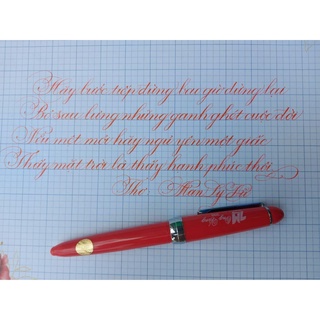 Hãy bước tiếp đừng bao giờ dừng lại
Bỏ sau lưng những ganh ghét cuộc đời
Nếu mệt mỏi hãy ngủ yên một giấc
Thấy mặt trời là thấy hạnh phúc thôi
Thơ